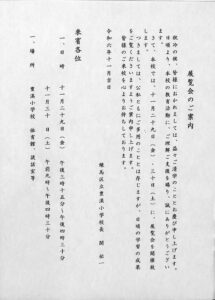 展覧会のご案内
秋冷の候　皆様におかれましては、益々ご清祥のこととお慶び申し上げます。
日頃より、本校の教育活動に、ご理解ご支援を賜り、誠にありがとうござい
ます。
さて、本校では、十一月二十九日（金）、三十日（土）に、展覧会を開催致
します。
つきましては、公私ともにご多用のこととは存じますが、日頃の学習の成果
をご覧くださいますようご案内申し上げます。
皆様のご来校を心よりお待ちしております。
令和六年十一月吉日
練馬区立豊溪小学校長　関　祐一
来賓各位
一、日　時　十一月二十九日（金）　午後二時十五分～午後四時三十分
十一月三十日（土）　午前九時～午後四時三十分
一、場　所　豊溪小学校　体育館